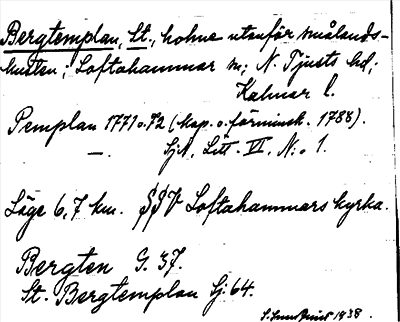 Bergtemplan, St., holme utanför smålands-
kusten; Loftahammar sn; N. Tjusts hd;
Kalmar l.
Pemplan 1771 o. 72 (kap. o. förminsk. 1788).
— SjA, Litt. VI, N:o 1.
Läge 6,7 km. SSV Loftahammars kyrka.
Bergten G. 37.
St. Bergtemplan Sj. 64.
1938.